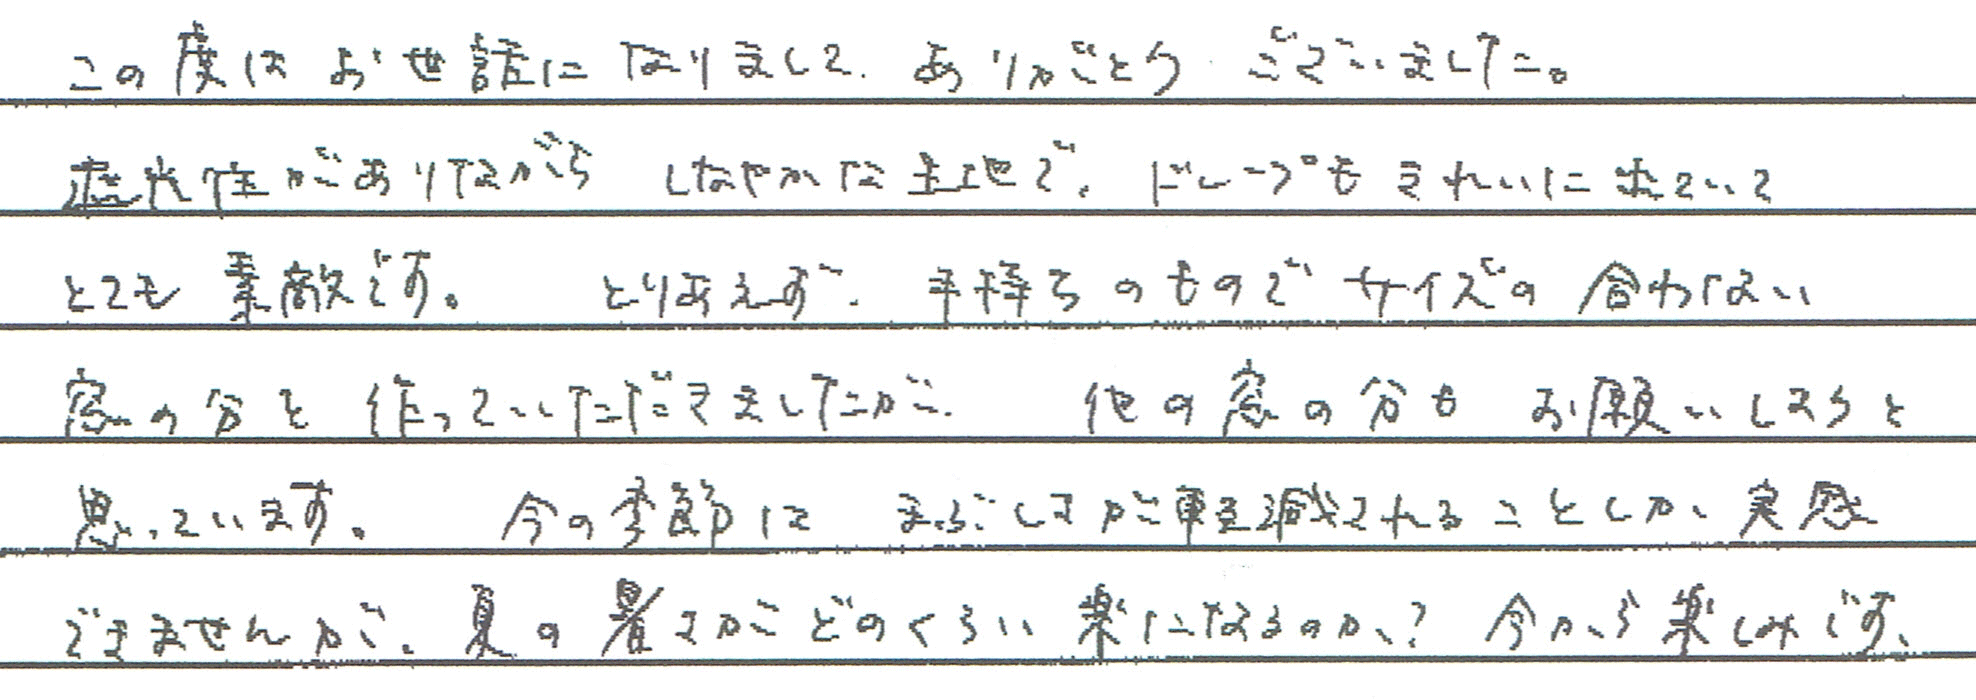 この度はお世話になりまして、ありがとうございました。
遮光性がありながら しなやかな生地で、ドレープもきれいに出ていて
とても素敵です。 とりあえず、手持ちのものでサイズの合わない
窓の分を作っていただきましたが、 他の窓の分もお願いしようと
思っています。 今の季節は まぶしさが軽減されることしか、実感
できませんが、夏の暑さがどのくらい楽になるのか？今から楽しみです、